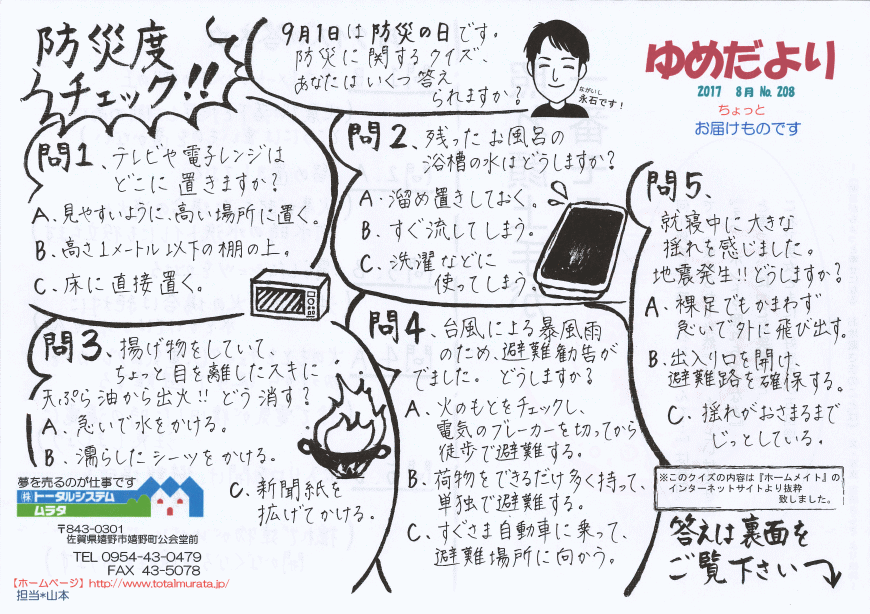 防災度
チェック!!
9月1日は防災の日です。
防災に関するクイズ、
あなたはいくつ答え
られますか?
ながいし
永石です!
ゆめだより
2017 8月 No. 208
ちょっと
お届けものです
問1、テレビや電子レンジは
どこに置きますか?
A、見やすいように、高い場所に置く。
B、高さ1メートル以下の棚の上。
C、床に直接置く。
問2、残ったお風呂の
浴槽の水はどうしますか?
A、溜め置きしておく。
B、すぐ流してしまう。
C、洗濯などに
使ってしまう。
問3、揚げ物をしていて、
ちょっと目を離したスキに
天ぷら油から出火!!どう消す?
A、急いで水をかける。
B、濡らしたシーツをかける。
C、新聞紙を
拡げてかける。
問4、台風による暴風雨
のため、避難勧告が
でました。どうしますか?
A、火のもとをチェックし、
電気のブレーカーを切ってから
徒歩で避難する。
B、荷物をできるだけ多く持って、
単独で避難する。
C、すぐさま自動車に乗って、
避難場所に向かう。
問5、
就寝中に大きな
揺れを感じました。
地震発生!!どうしますか?
A、裸足でもかまわず
急いで外に飛び出す。
B、出入り口を開け、
避難路を確保する。
C、揺れがおさまるまで
じっとしている。
※このクイズの内容は『ホームメイト』の
インターネットサイトより抜粋
致しました。
答えは裏面を
ご覧下さい
夢を売るのが仕事です
㈱トータルシステム
ムラタ
〒843-0301
佐賀県嬉野市嬉野町公会堂前
TEL 0954-43-0479
FAX 43-5078
【ホームページ】http://www.totalmurata.jp/
担当*山本